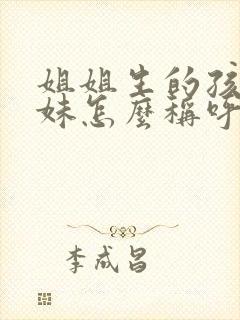 姐姐生的孩
妹怎麼稱呼
李成昌